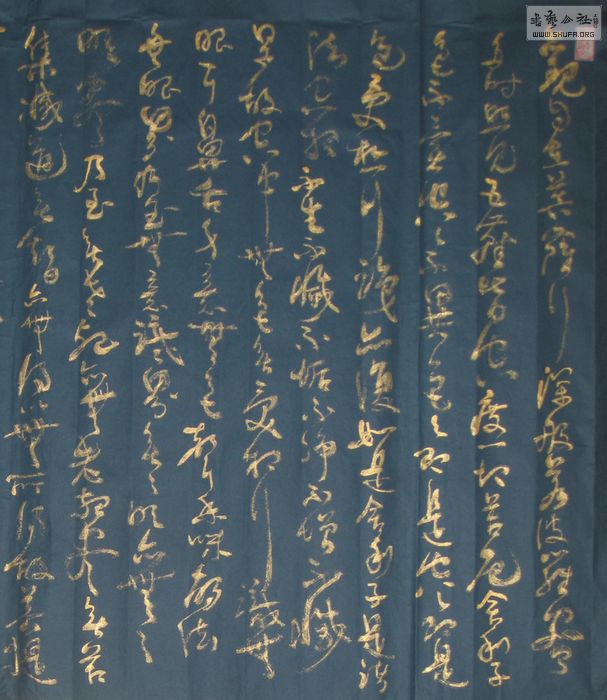 観自在菩薩行深般若波羅蜜
多時照見五蘊皆空度一切苦厄舍利子
色不異空空不異色色即是空空即是
色受想行識亦復如是舍利子是諸
法空相不生不滅不垢不淨不增不減
是故空中無色無受想行識無
眼耳鼻舌身意無色聲香味觸法
無眼界乃至無意識界無無明亦無無
明盡乃至無老死亦無老死盡無苦
集滅道無智亦無得以無所得故菩提
書藝公社
WWW.SHUFA.ORG